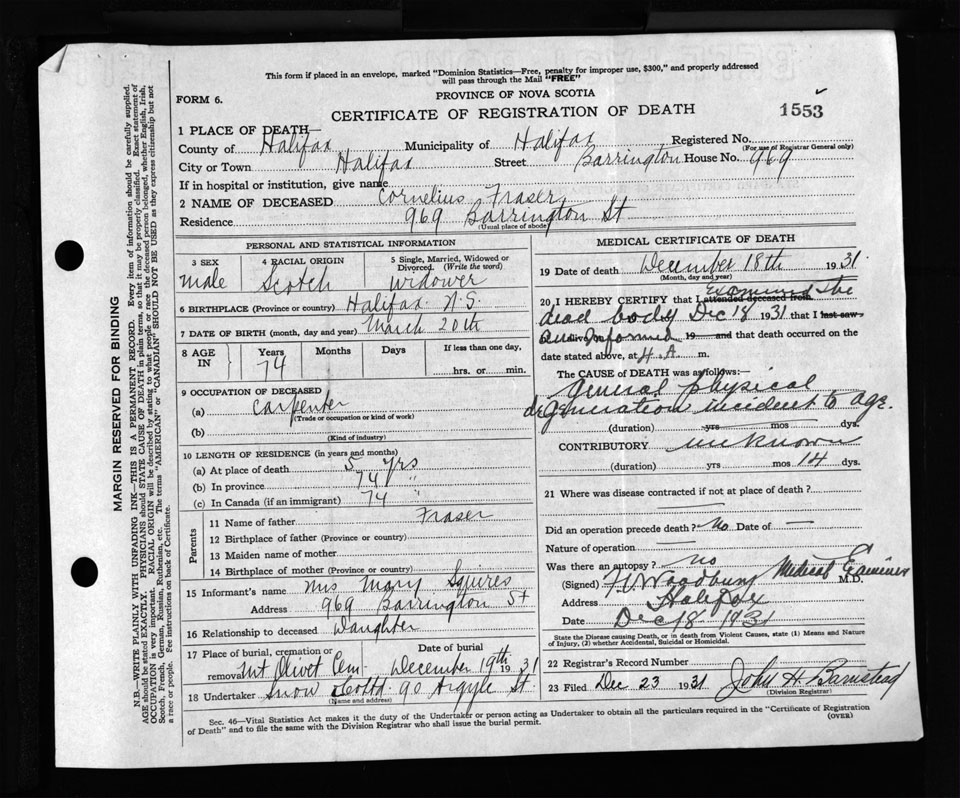 This form if placed in an envelope, marked "Dominion Statistics—Free, penalty for improper use, $300," and properly addressed
will pass through the Mail "FREE"
FORM 6.
PROVINCE OF NOVA SCOTIA
CERTIFICATE OF REGISTRATION OF DEATH
1553
1 PLACE OF DEATH—
County of Halifax Municipality of Halifax Registered No.
(For use of Registrar General only)
City or Town Halifax Street Barrington House No. 969
If in hospital or institution, give name
2 NAME OF DECEASED Cornelius Fraser
Residence 969 Barrington St
(Usual place of abode)
PERSONAL AND STATISTICAL INFORMATION
3 SEX male
4 RACIAL ORIGIN Scotch
5 Single, Married, Widowed or Divorced. (Write the word) widower
6 BIRTHPLACE (Province or country) Halifax N.S.
7 DATE OF BIRTH (month, day and year) March 20th
8 AGE IN Years 74 Months Days If less than one day, hrs. or min.
9 OCCUPATION OF DECEASED
(a) Carpenter
(Trade or occupation or kind of work)
(b)
(Kind of industry)
10 LENGTH OF RESIDENCE (in years and months)
(a) At place of death 5 yrs
(b) In province 74 "
(c) In Canada (if an immigrant) 74 "
Parents
11 Name of father Fraser
12 Birthplace of father (Province or country)
13 Maiden name of mother
14 Birthplace of mother (Province or country)
15 Informant's name Mrs Mary Squires
Address 969 Barrington St
16 Relationship to deceased Daughter
17 Place of burial, cremation or removal Mt Olivet Cem. Date of burial December 19th 1931
18 Undertaker Snow Co Ltd. 90 Argyle St.
(Name and address)
MEDICAL CERTIFICATE OF DEATH
19 Date of death December 18th 1931
(Month, day and year)
20 I HEREBY CERTIFY that I attended deceased from examined the
dead body Dec 18 1931 that I last saw
informed 19 and that death occurred on the
date stated above, at 4. A m.
The CAUSE of DEATH was as follows:—
General physical
degeneration incident to age.
(duration) yrs mos dys.
CONTRIBUTORY unknown
(duration) yrs mos 14 dys.
21 Where was disease contracted if not at place of death ?
Did an operation precede death ? No Date of —
Nature of operation —
Was there an autopsy ? no
(Signed) Woodbury Medical Examiner M.D.
Address Halifax
Date Dec 18 1931
State the Disease causing Death, or in death from Violent Causes, state (1) Means and Nature
of Injury, (2) whether Accidental, Suicidal or Homicidal.
22 Registrar's Record Number
23 Filed Dec 23 1931 John H. Barnstead
(Division Registrar)
Sec. 46—Vital Statistics Act makes it the duty of the Undertaker or person acting as Undertaker to obtain all the particulars required in the "Certificate of Registration
of Death" and to file the same with the Division Registrar who shall issue the burial permit.
(OVER)
MARGIN RESERVED FOR BINDING
N.B.—WRITE PLAINLY WITH UNFADING INK—THIS IS A PERMANENT RECORD. Every item of information should be carefully supplied.
AGE should be stated EXACTLY. PHYSICIANS should STATE CAUSE OF DEATH in plain terms, so that it may be properly classified. Exact statement of
OCCUPATION is very important. RACIAL ORIGIN will be described by stating to what people or race the deceased person belonged, whether English, Irish,
Scotch, French, German, Russian, Ruthenian, etc. The terms "AMERICAN" or "CANADIAN" SHOULD NOT BE USED as they express citizenship but not
a race or people. See instructions on back of Certificate.